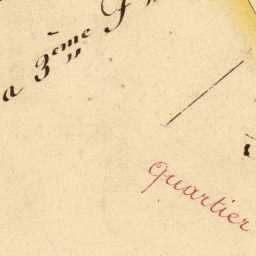 a 3ème
Quartier